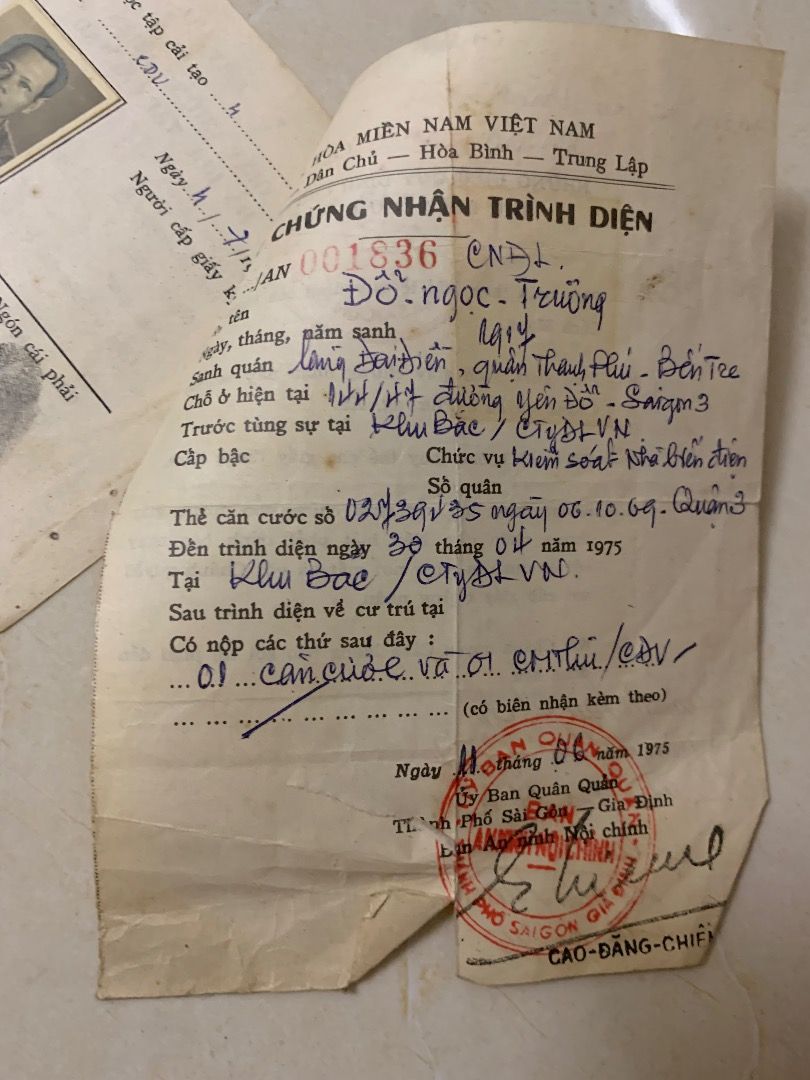 ọc tập cải tạo ... 4
CDV
Ngày 4 / 7 / 1
Người cấp giấy k
Ngón cái phải
HÒA MIỀN NAM VIỆT NAM
Dân Chủ — Hòa Bình — Trung Lập
CHỨNG NHẬN TRÌNH DIỆN
/AN 001836 CNĐL.
tên Đỗ - ngọc - Trường
Ngày, tháng, năm sanh 1917
Sanh quán làng Đại Điền, quận Thạnh Phú - Bến Tre
Chỗ ở hiện tại 144/47 đường Yên Đỗ - Saigon 3
Trước tùng sự tại Khu Bắc / CTyĐLVN
Cấp bậc Chức vụ Kiểm soát Nhà biến điện
Số quân
Thẻ căn cước số ngày 06.10.69 - Quận 3
Đến trình diện ngày 30 tháng 04 năm 1975
Tại Khu Bắc / CTyĐLVN.
Sau trình diện về cư trú tại
Có nộp các thứ sau đây :
... 01 ... căn cước và 01 /CĐV
... ... ... ... ... ... ... ... ... ... (có biên nhận kèm theo)
Ngày 11 tháng 06 năm 1975
Ủy Ban Quân Quản
Thành Phố Sài Gòn — Gia Định
Ban An ninh Nội chính
ỦY BAN QUÂN QUẢN
THÀNH PHỐ SAIGON GIA ĐỊNH
BAN
AN NINH NỘI CHÍNH
CAO-ĐĂNG-CHIẾM